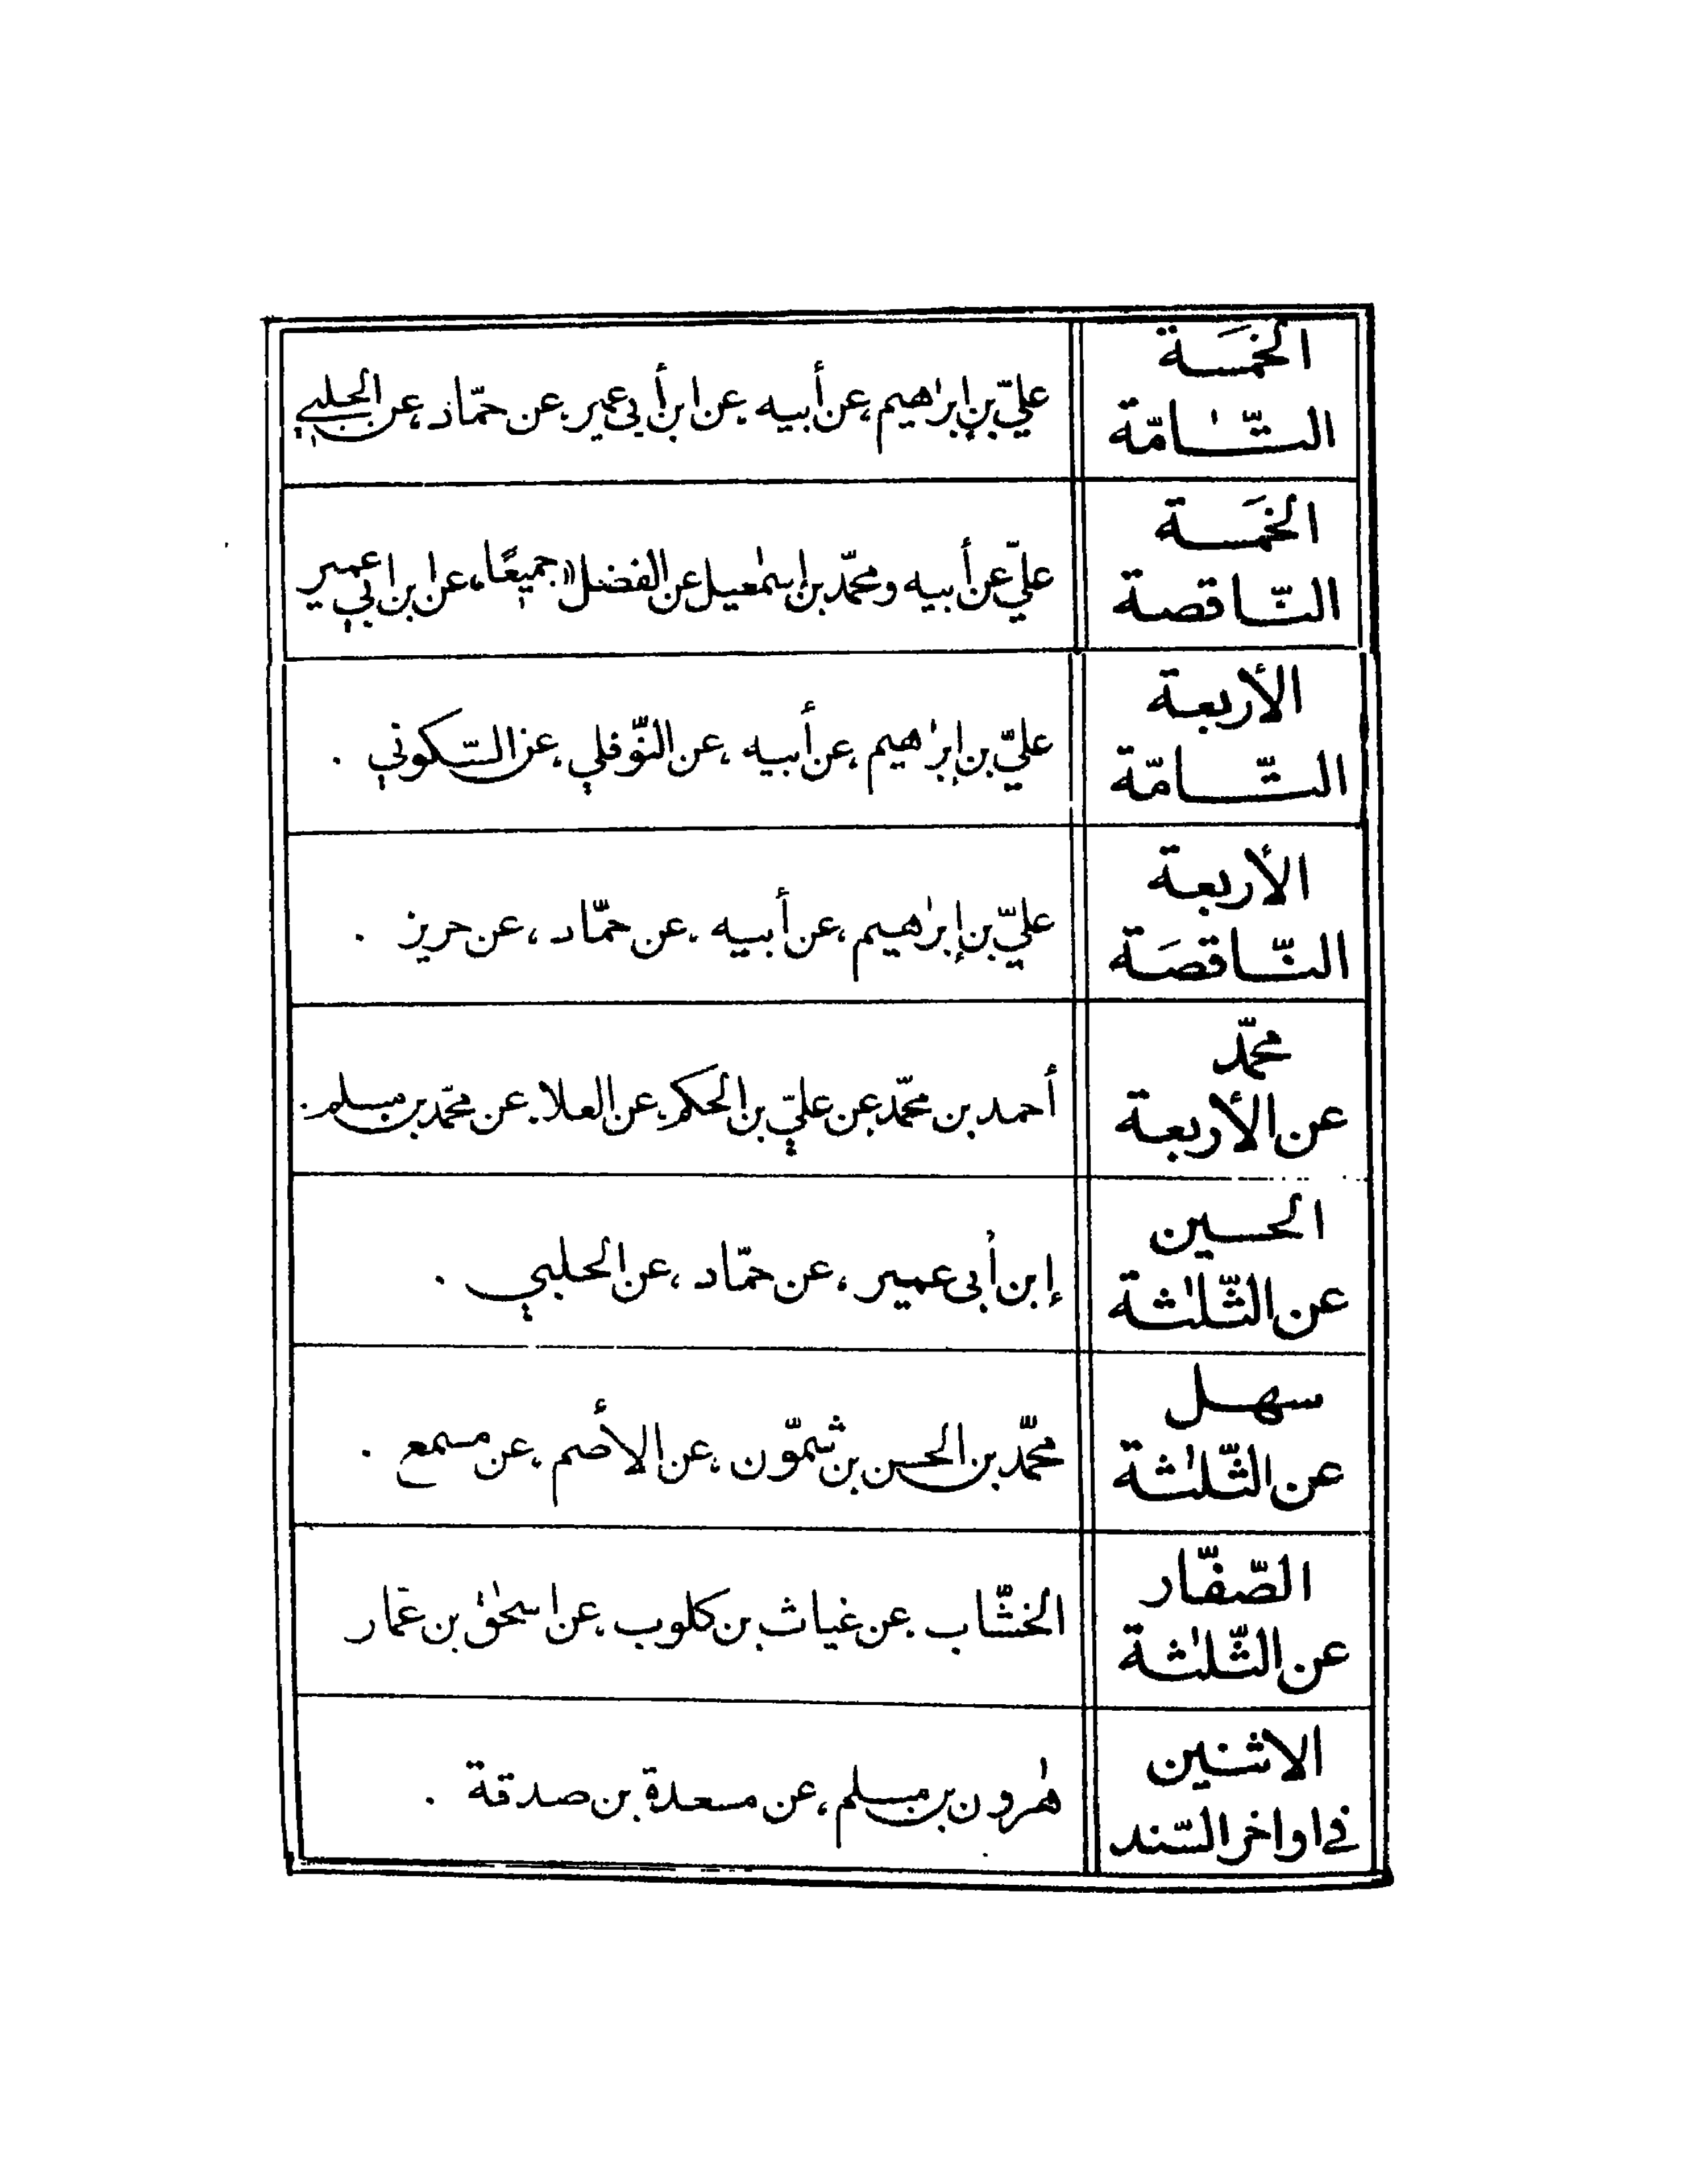 الخمَسَة
التّامّة
عليّ بن إبرٰاهيم، عن أبيه، عن ابن أبي عمير، عن حمّاد، عن الحلبي
الخمَسَة
النّاقصة
عليّ عن أبيه ومحمّد بن إسمٰعيل عن الفضل «جميعًا»، عن ابن ابي عمير
الأربعة
التّامّة
عليّ بن إبرٰاهيم، عن أبيه، عن النّوفلي، عن السّكوني .
الأربعة
النّاقصَة
عليّ بن إبرٰاهيم، عن أبيه، عن حمّاد، عن حريز .
محمّد
عن الأربعة
أحمد بن محمّد عن عليّ بن الحكم، عن العلا، عن محمّد بن مسلم .
الحسين
عن الثّلٰثة
إبن أبي عمير، عن حمّاد، عن الحلبي .
سهل
عن الثّلٰثة
محمّد بن الحسن بن شمّون، عن الأصم، عن مسمع .
الصّفّار
عن الثّلٰثة
الخشّاب، عن غياث بن كلوب، عن اسحٰق بن عمّار
الاثنين
في اواخر السّند
هٰرون بن مسلم، عن مسعدة بن صدقة .